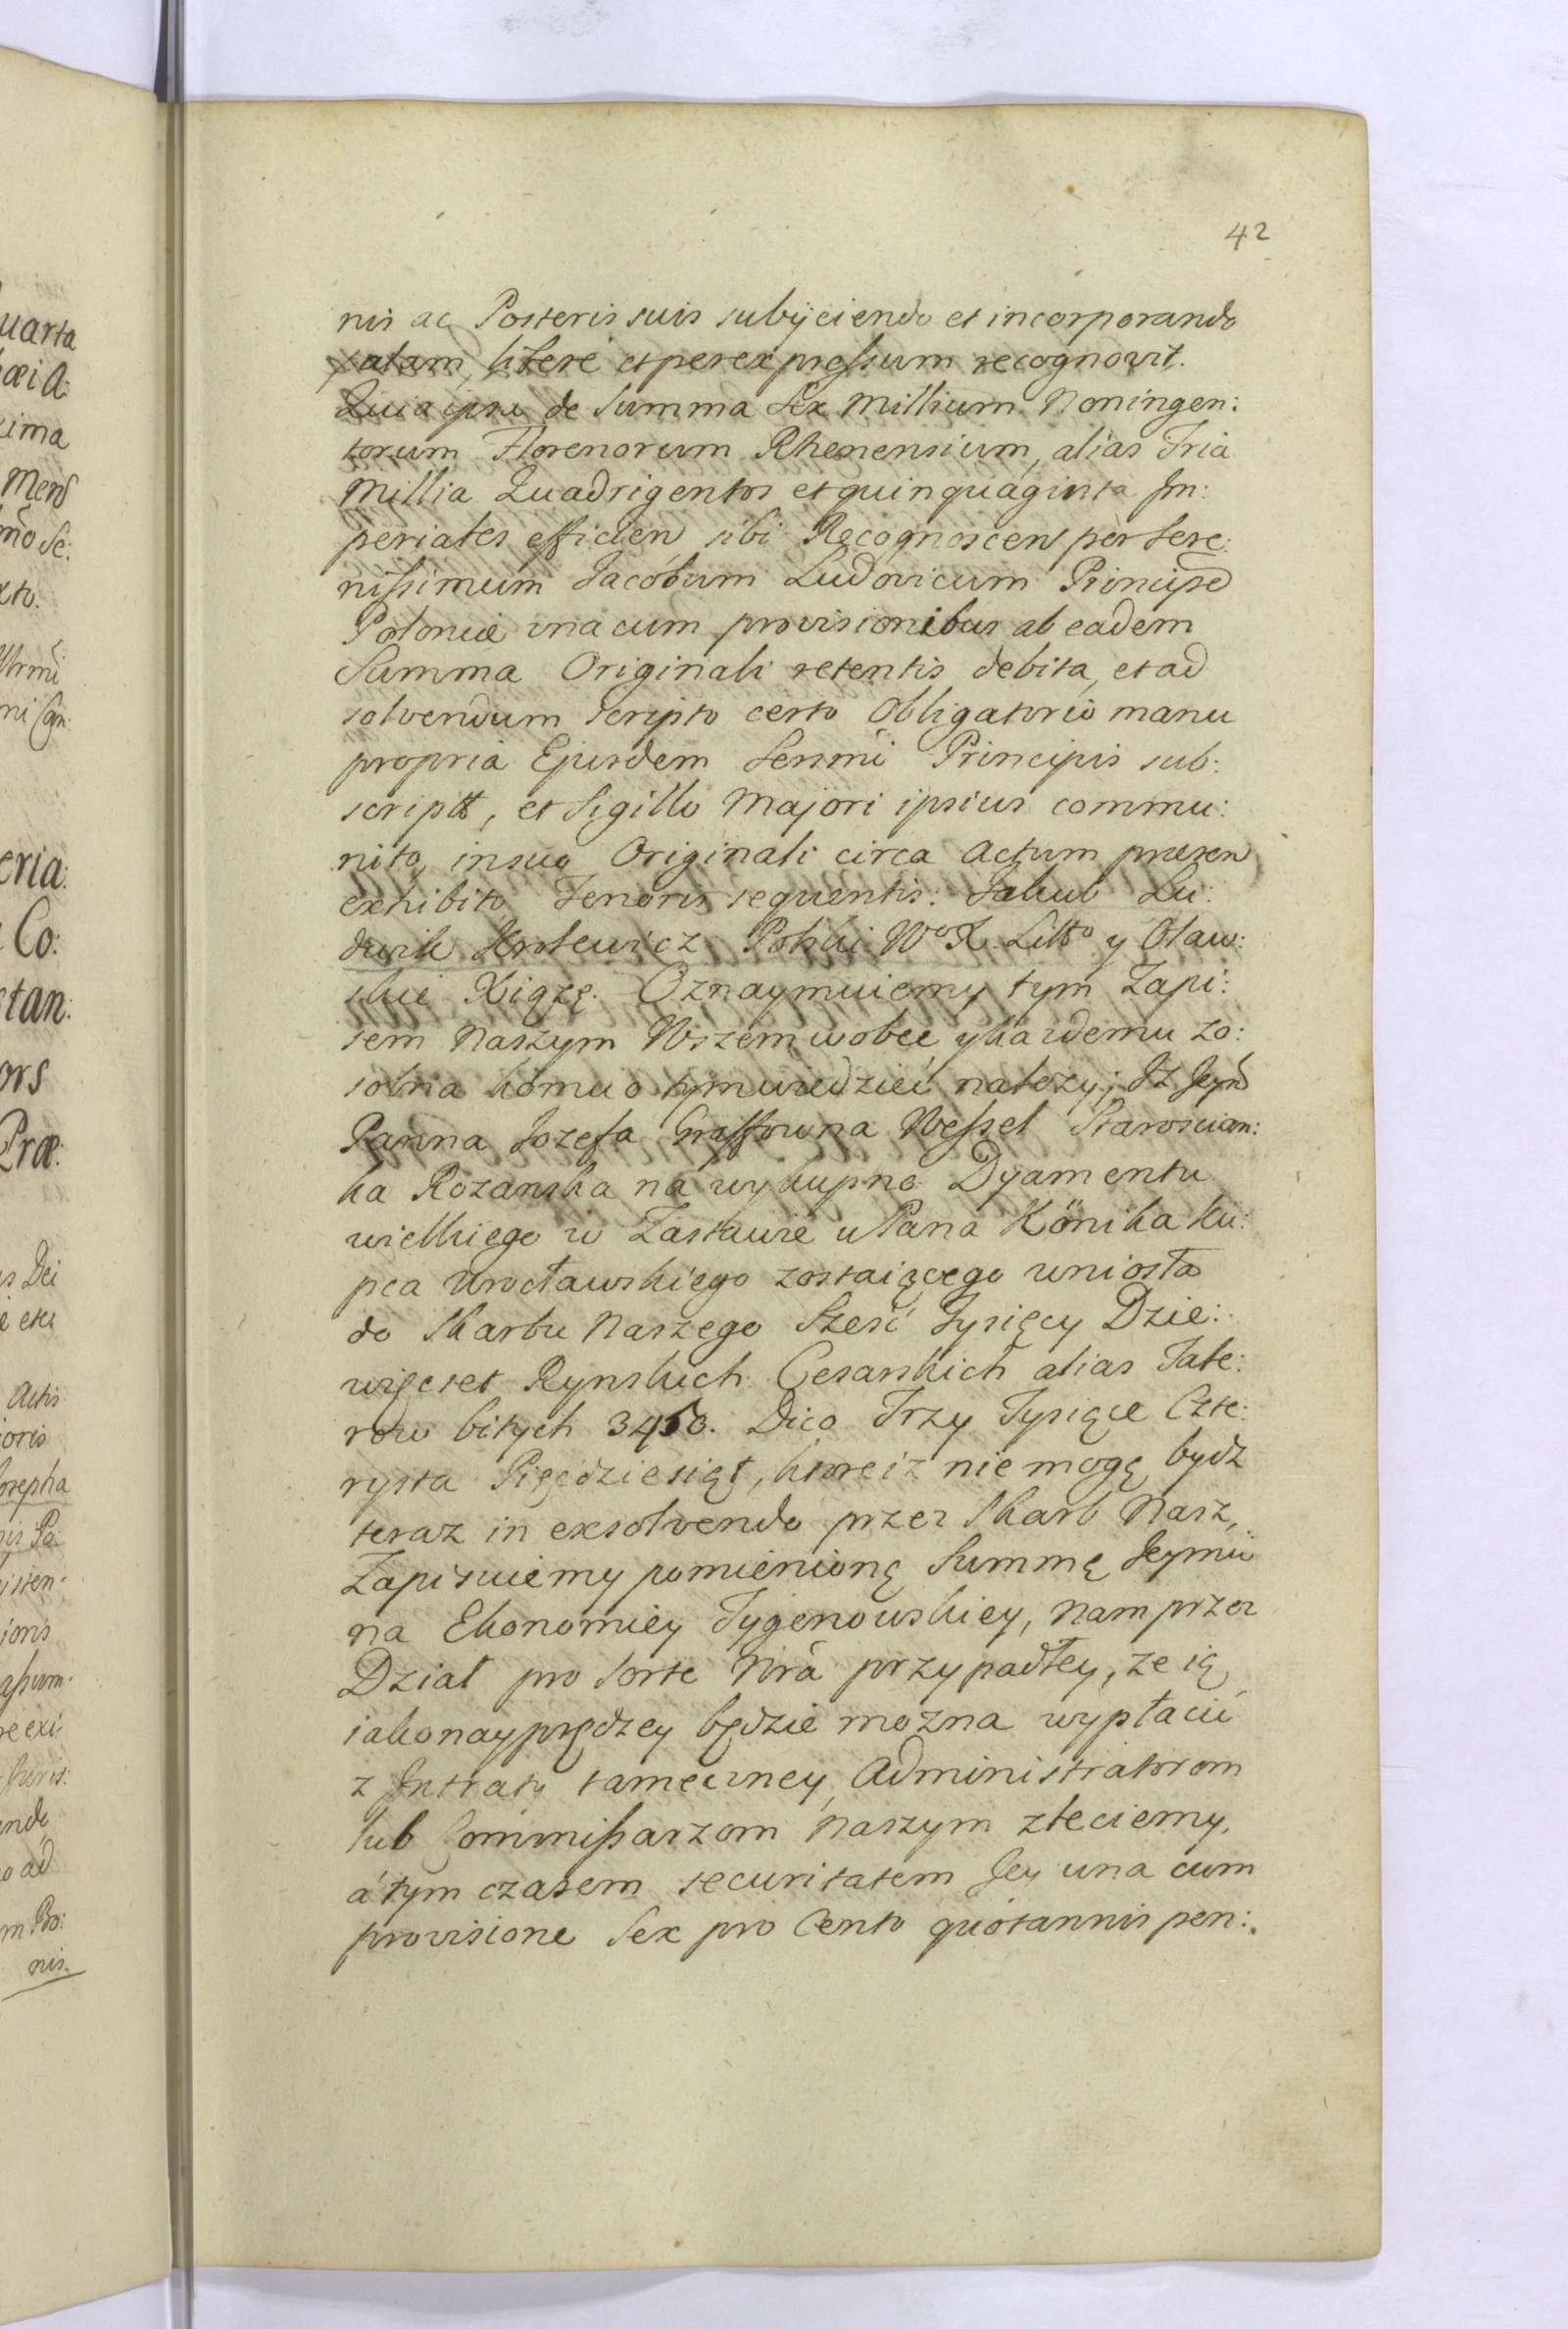 42
nis ac Posteris suis subijciendo et incorporando
palam, liberè et per expressum recognovit.
Quia ipsa de Summa Sex Millium Noningen:
torum Florenorum Rhenensium, alias Tria
Millia Quadrigentos et quinquaginta Im:
periales efficien, sibi Recognoscen per Sere:
nissimum Jacobum Ludovicum Principe
Poloniæ una cum provisionibus ab eadem
Summa Originali retentis debita, et ad
solvendum scripto certo Obligatorio manu
propria Ejusdem Sernmi Principis sub:
script, et Sigillo Majori ipsius commu:
nito, in suo Originali circa Actum præsen
exhibito, Tenoris sequentis: Jakub Lu:
dwik Krolewicz Polski W° X. Litt° y Olaw:
skie Xiąźę. Oznaymuiemy tym Zapi:
sem Naszym Wszem wobec y kazdemu zo:
sobna komu o tym wiedzieć należy; Iz Jeym
Panna Jozefa Graffowna Wessel Starościan:
ka Rozanska na wykupno Dyamentu
wielkiego w Zastawie u Pana Könika ku:
pca Wrocławskiego zostaiącego wniosła
do Skarbu Naszego Sześć Tysięcy Dzie:
więcset Rynskich Cesarskich alias Tale:
row bitych 3450. Dico Trzy Tysiące Czte:
rysta Pięćdziesiąt, ktore iz nie mogą bydz
teraz in exsolvendo przez Skarb Nasz,
Zapisuiemy pomienioną Summę Jeymci
na Ekonomiey Tygenowskiey, nam przez
Dział pro sorte Nrâ przypadłey, ze ią
iako nayprędzey będzie mozna wypłacić
z Intraty tameczney, Administratorom
lub Commissarzom Naszym zleciemy,
á tym czasem securitatem Jey una cum
provisione Sex pro Cento quotannis pen:
uarta
ima
Mens
xto.
eria:
Co:
stan:
ors
Præ:
s Dei
Actis
ioris
osepha
nis Pa
isten:
ionis
re exi:
ando
o ad
m Bo:
nis.